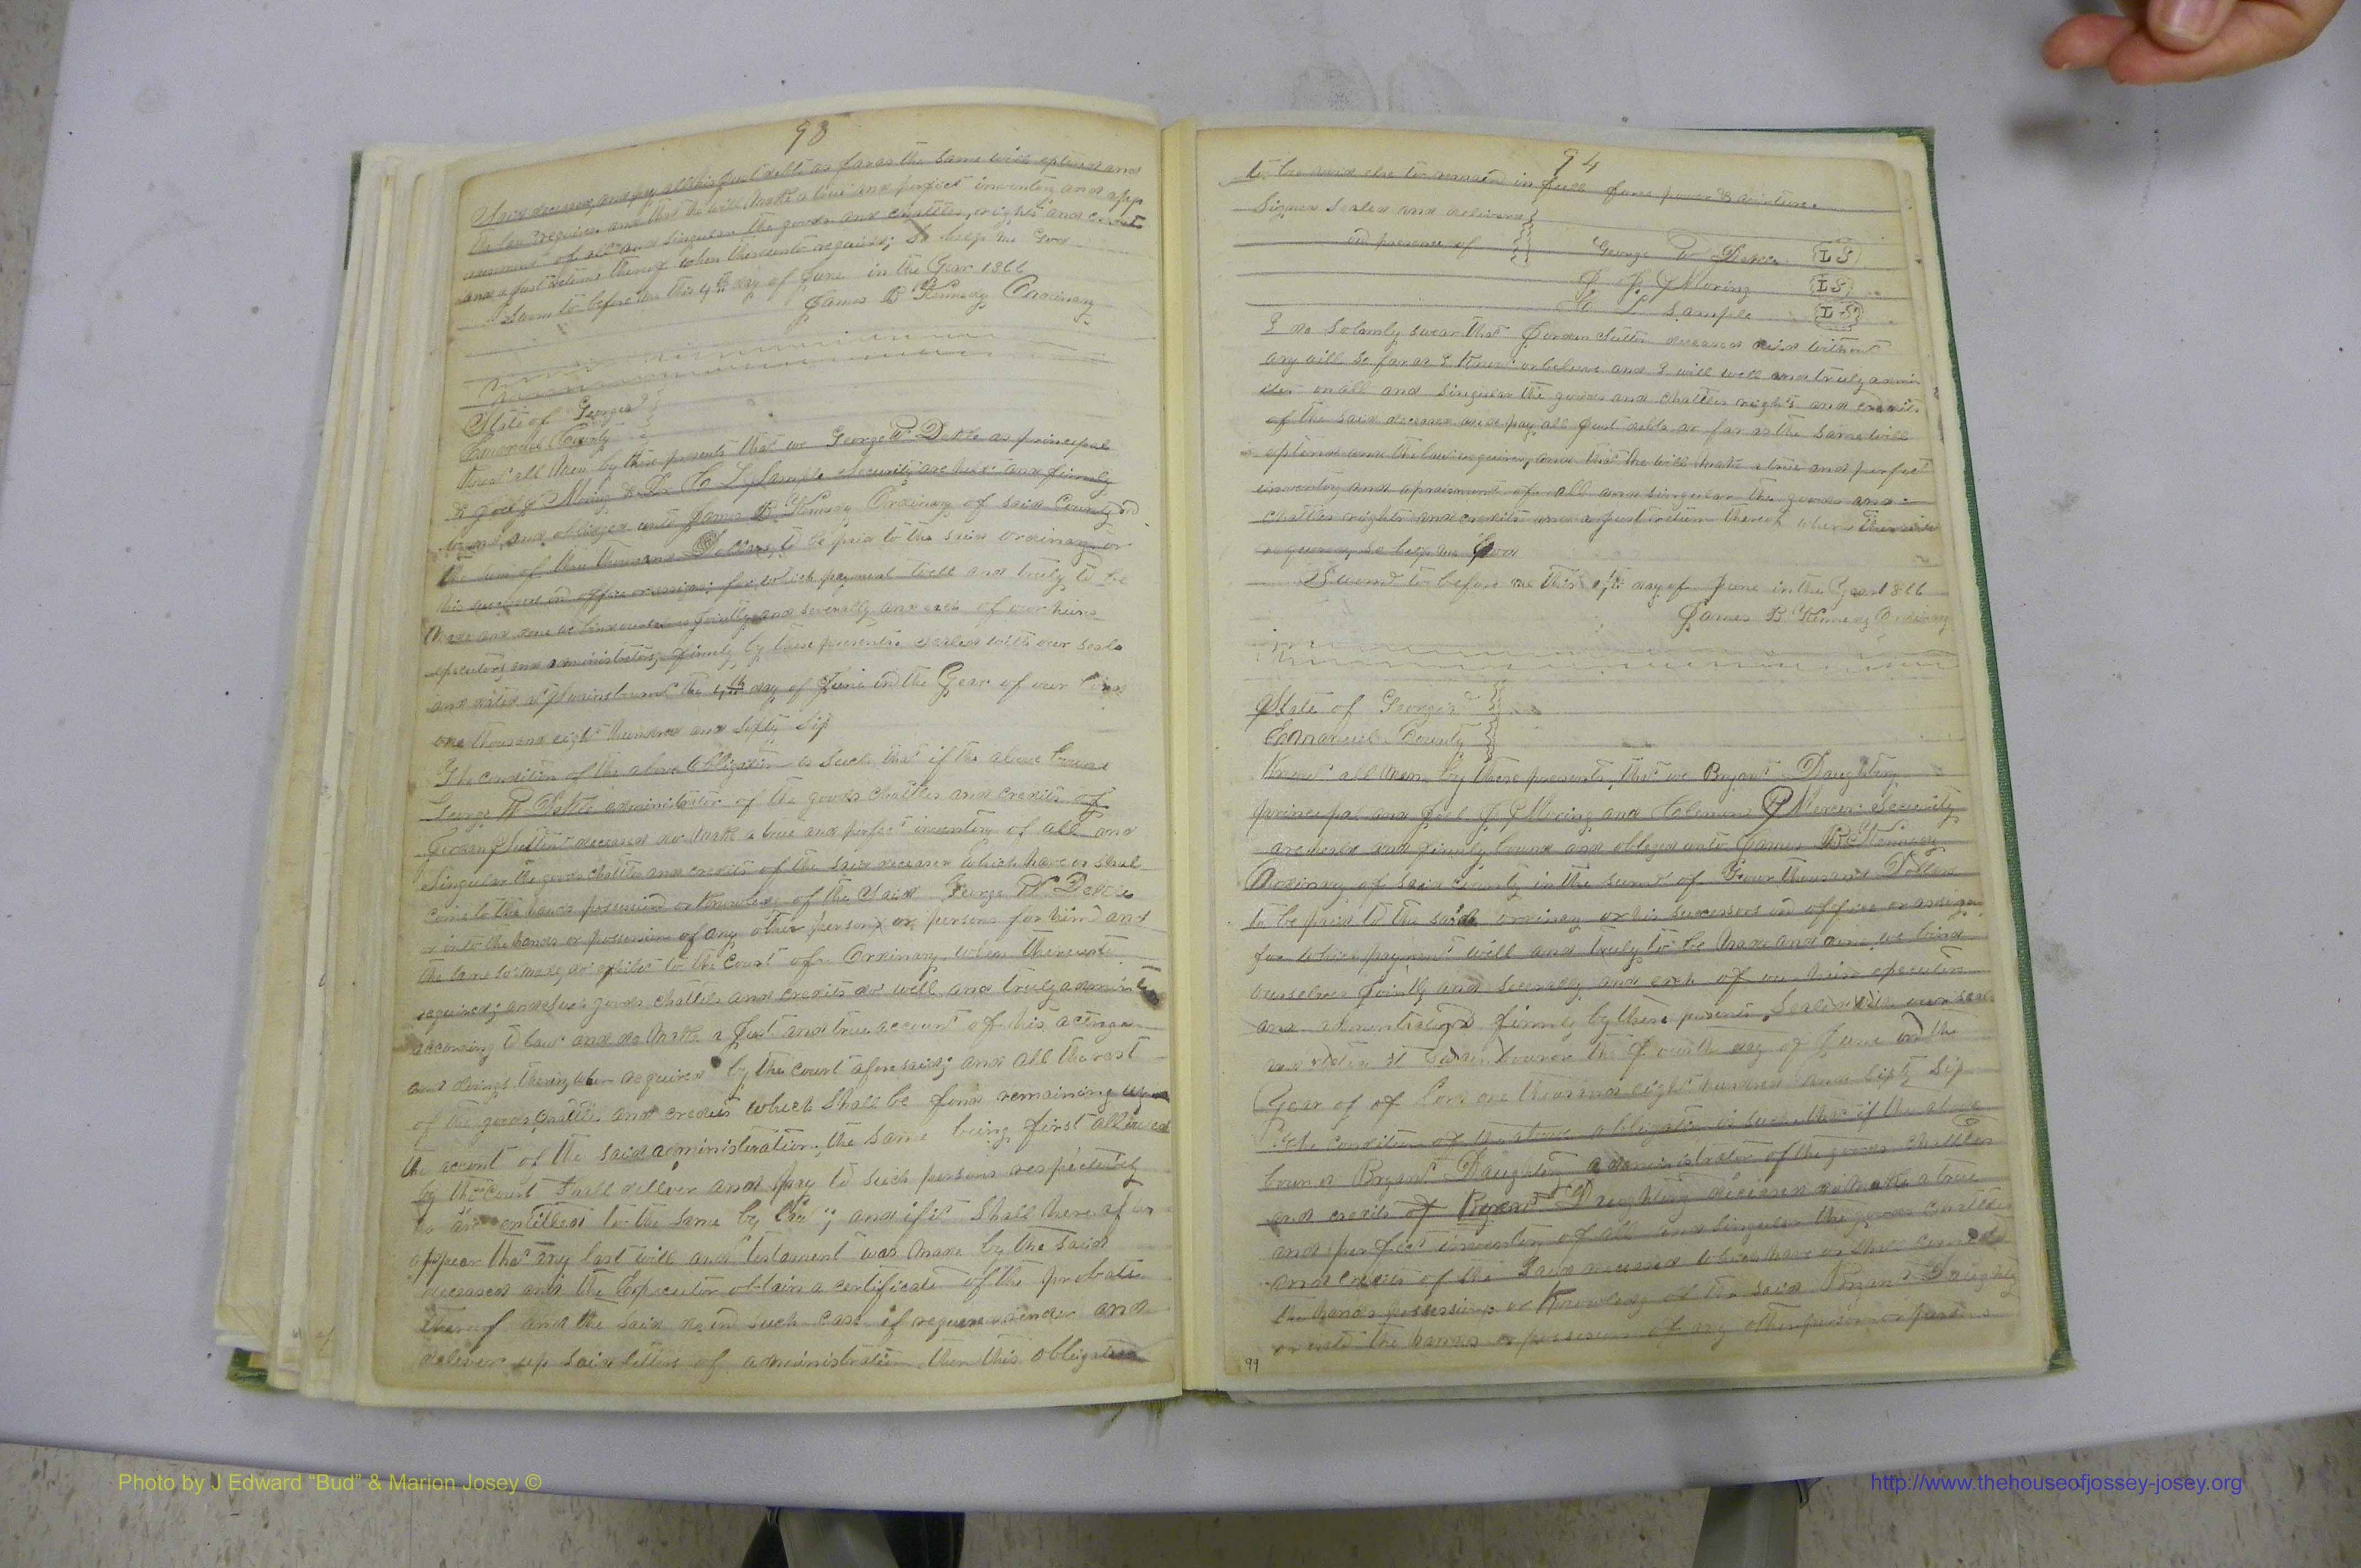 93
Said deceased, and pay all his just debts as far as the same will extend and
the law requires and that he will make a true and perfect inventory and app
of all and singular the goods and chattles, rights and credit
and a just return thereof when thereunto required; So help me God
Sworn to before me this 4th day of June in the Year 1866
James B Kennedy Ordinary
State of Georgia
Emanuel County
Know all Men by these presents that we George W Dekle as principal
& Joel J Moring & H L Sample Security are held and firmly
bound and obliged unto James B Kennedy Ordinary of said County in
the Sum of three thousand Dollars, to be paid to the said ordinary or
his successors in office or assigns; for which payment well and truly to be
Made and done we bind ourselves jointly and severally and each of our heirs
executors and administrators, firmly by these presents sealed with our seals
and dated at the 4th day of June in the Year of our Lord
one thousand eight hundred and sixty six
The condition of the above obligation is such that if the above bound
George W Dekle administrator of the goods chattles and credits of
deceased do make a true and perfect inventory of all and
Singular the goods chattles and credits of the said deceased which have or shal
come to the hands possession or knowledg of the said George W Dekle
or into the hands or possession of any other person or persons for him and
the same so made do exhibit to the Court of Ordinary when thereunto
required; and such goods chattles and credits do well and truly
according to law and do make a just and true account of his actings
and doings therein when required by the court aforesaid; and all the rest
of the goods chattles and credits which shall be found remaining upon
the account of the said administration, the same being first allowed
by the court shall deliver and pay to such persons respectively
as are entitled to the same by law; and if it shall hereafter
appear that any last will and testament was made by the said
deceased and the Executor obtain a certificate of the probate
thereof and the said do in such case if required render and
deliver up said letters of administration then this obligation
94
to be void else to remain in full force power &
Signed Sealed and delivered
in presence of George W Dekle LS
J J Moring LS
H L Sample LS
I do solemly swear that deceased died without
any will so far as I know or believe and I will well and truly admin
ister on all and singular the goods and chattles rights and credits
of the said deceased and pay all just debts as far as the same will
extend and the law requires, and that he will make a true and perfect
inventory and of all and singular the goods and
chattles rights and credits and a just return thereof when
required, so help me God
Sworn to before me this 4th day of June in the Year 1866
James B Kennedy Ordinary
State of Georgia
Emanuel County
Know all Men by these presents, that we Bryant Daughtry
principal and Joel J Moring and Security
are held and firmly bound and obliged unto James B Kennedy
Ordinary of said County in the sum of Four thousand Dollars
to be paid to the said ordinary or his successors in office or assigns
for which payment well and truly to be made and done we bind
ourselves jointly and severally and each of our heirs executors
and firmly by these presents, Sealed with our seals
and the fourth day of June in the
Year of of Lord one thousand eight hundred and sixty six
The condition of the above obligation is such that if the above
bound Bryant Daughtry administrator of the goods chattles
and credits of Bryant Daughtry deceased do make a true
and perfect inventory of all and singular the goods chattles
and credits of the said deceased which have or shall come to
the hands possession or Knowledg of the said Bryant Daughtry
or into the hands or possession of any other person or persons
99
Photo by J Edward “Bud” & Marion Josey ©
http://www.thehouseofjossey-josey.org